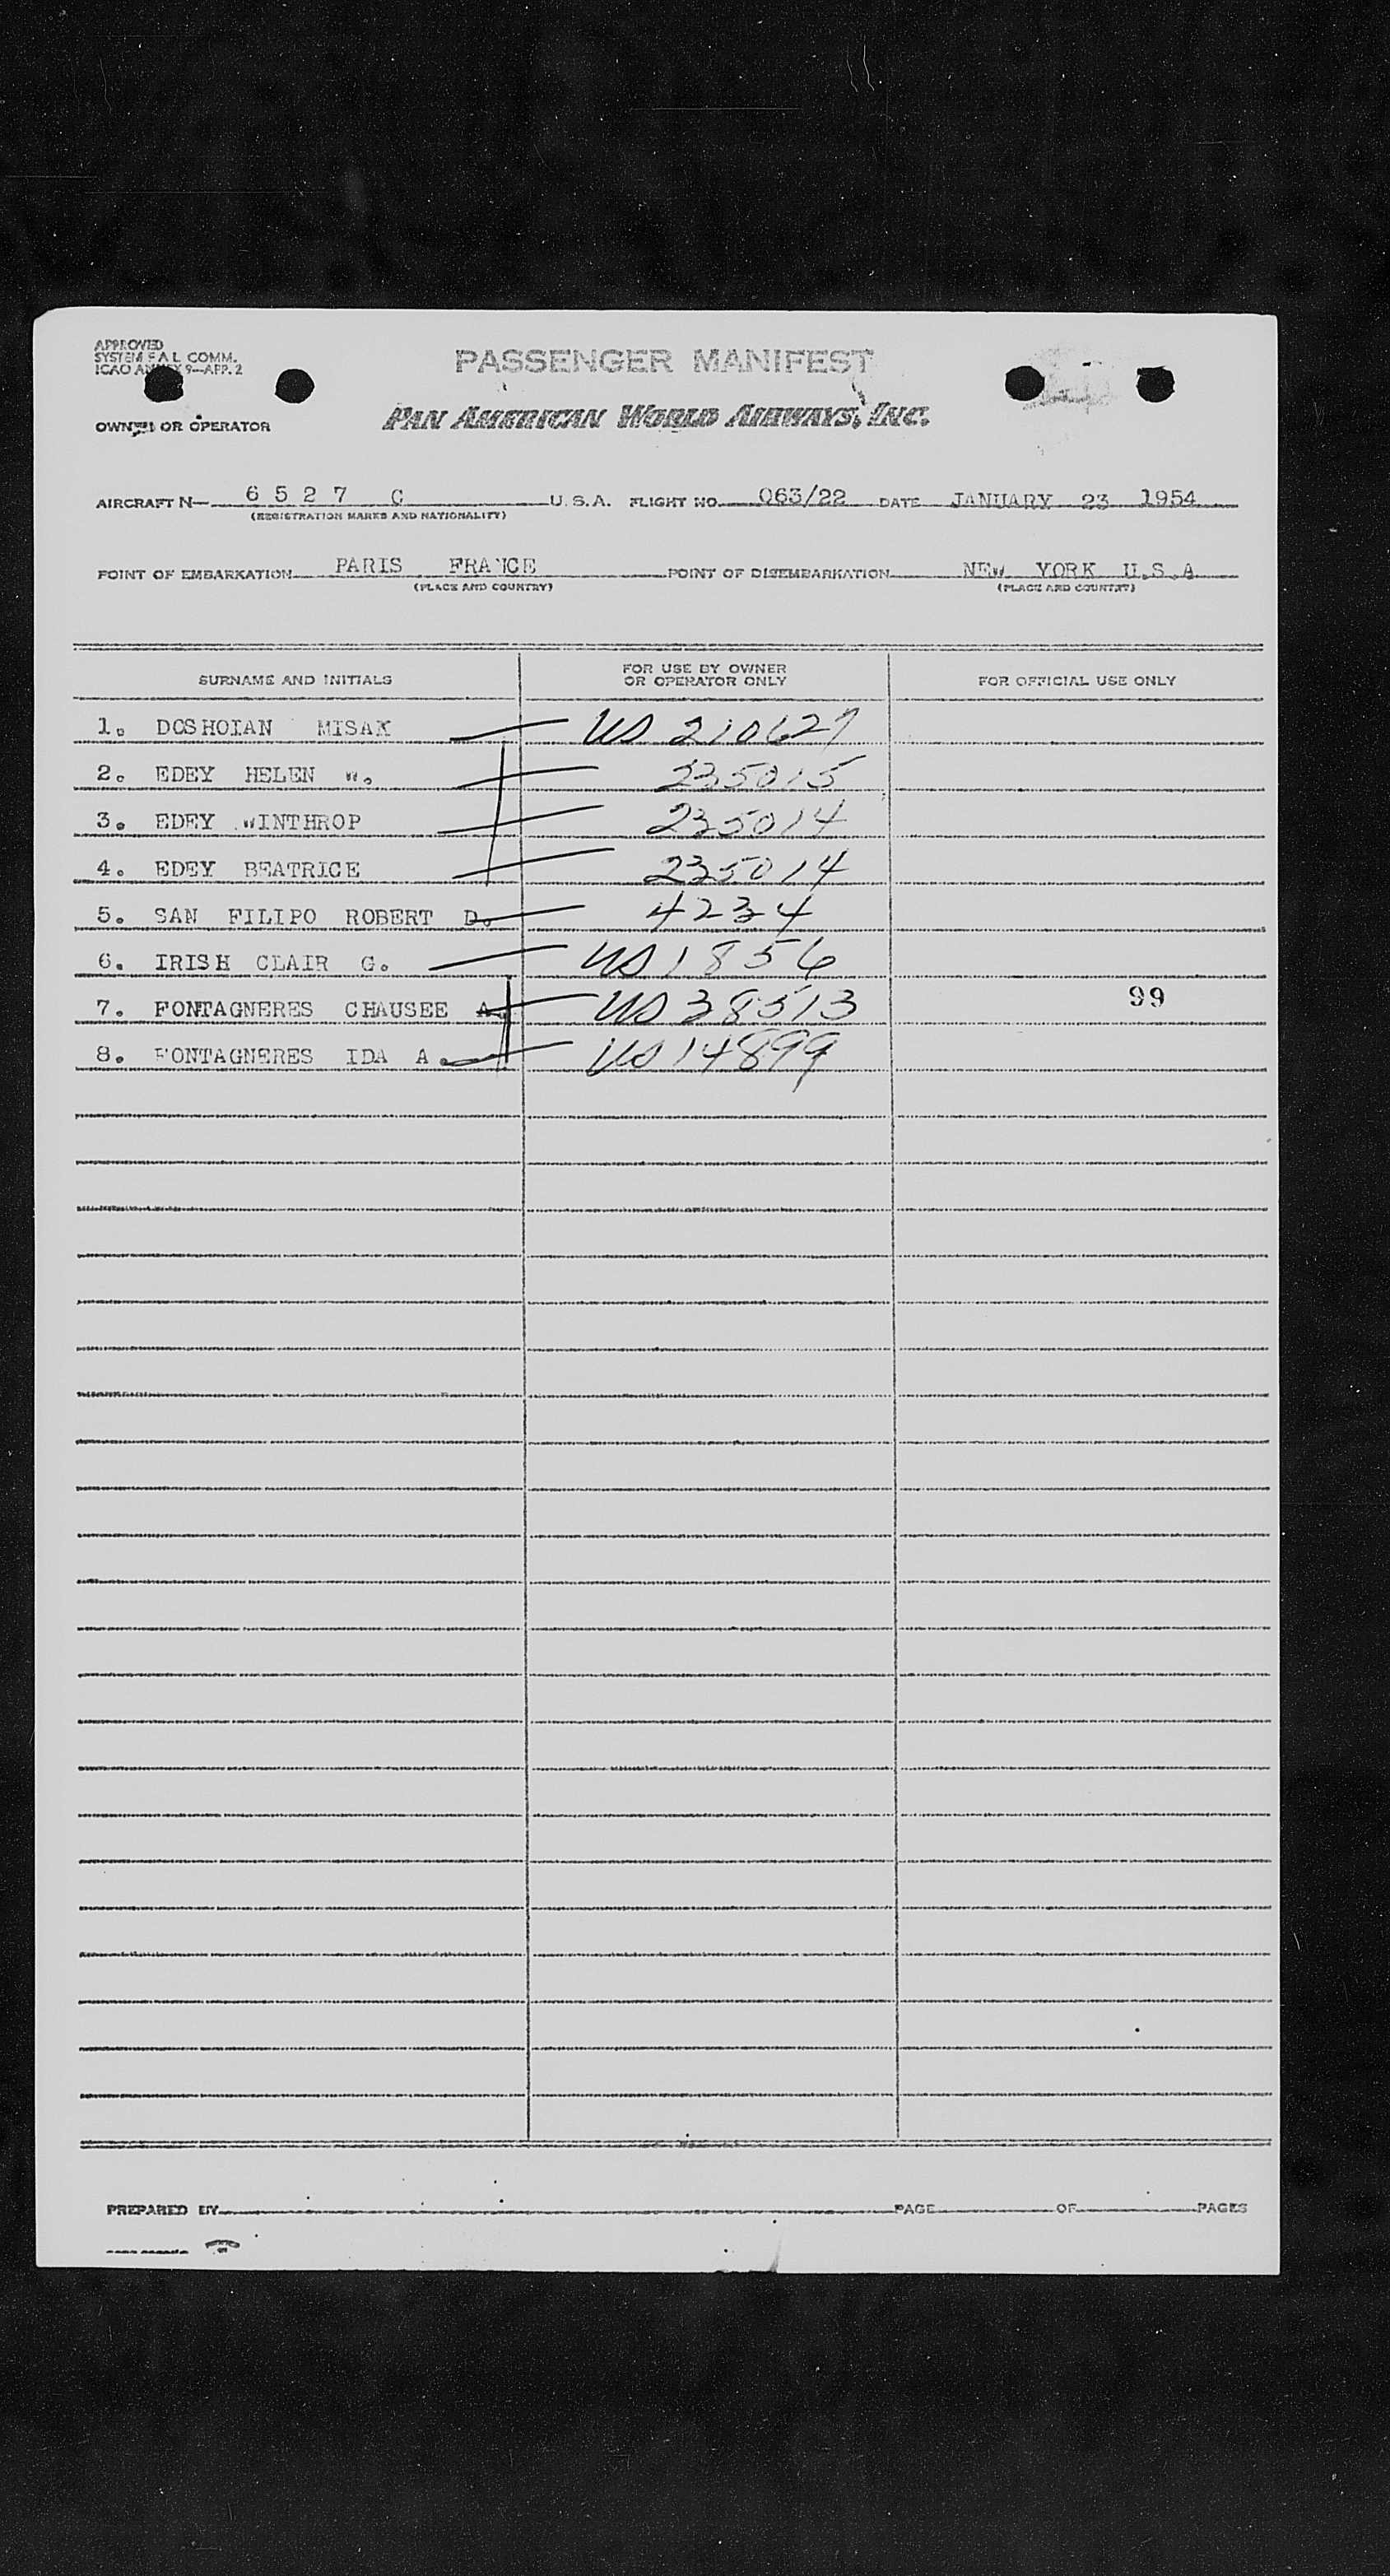 APPROVED
SYSTEM F A L COMM.
ICAO ANNEX 9—APP. 2
PASSENGER MANIFEST
OWNER OR OPERATOR
PAN AMERICAN WORLD AIRWAYS, INC.
AIRCRAFT N— 6 5 2 7 C U. S. A. FLIGHT NO. 063/22 DATE JANUARY 23 1954
(REGISTRATION MARKS AND NATIONALITY)
POINT OF EMBARKATION PARIS FRANCE POINT OF DISEMBARKATION NEW YORK U.S.A
(PLACE AND COUNTRY) (PLACE AND COUNTRY)
SURNAME AND INITIALS FOR USE BY OWNER OR OPERATOR ONLY FOR OFFICIAL USE ONLY
1. DOSHOIAN MISAK US 210627
2. EDEY HELEN W. 235015
3. EDEY WINTHROP 235014
4. EDEY BEATRICE 235014
5. SAN FILIPO ROBERT D. 4234
6. IRISH CLAIR G. US 1856
7. FONTAGNERES CHAUSEE A. US 38513 99
8. FONTAGNERES IDA A. US 14899
PREPARED BY PAGE OF PAGES